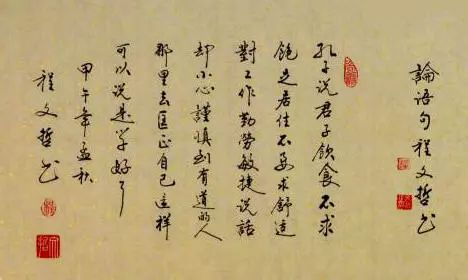 論语句程文哲书
孔子说君子飲食不求
飽足居住不要求舒適
對工作勤勞敏捷说話
却小心謹慎到有道的人
那里去匡正自己這样
可以说是学好了
甲午年孟秋
程文哲书